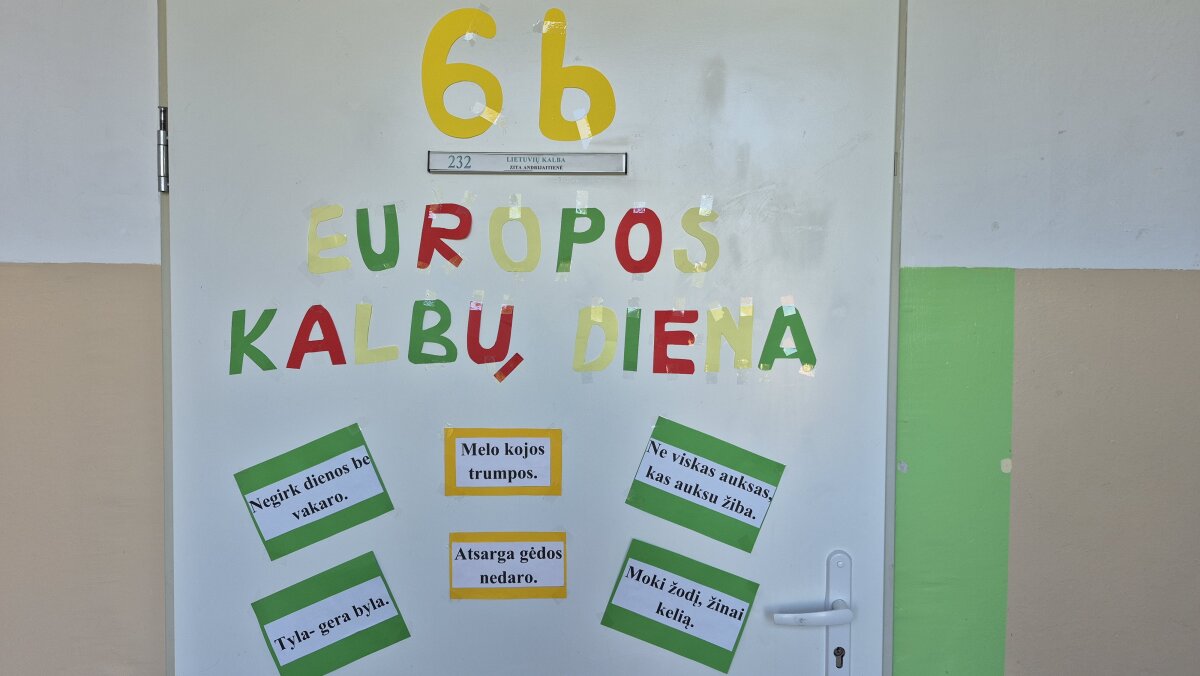 6b
232 LIETUVIŲ KALBA
ZITA ANDRIJAITIENĖ
EUROPOS
KALBŲ DIENA
Negirk dienos be
vakaro.
Melo kojos
trumpos.
Ne viskas auksas,
kas auksu žiba.
Tyla- gera byla.
Atsarga gėdos
nedaro.
Moki žodį, žinai
kelią.